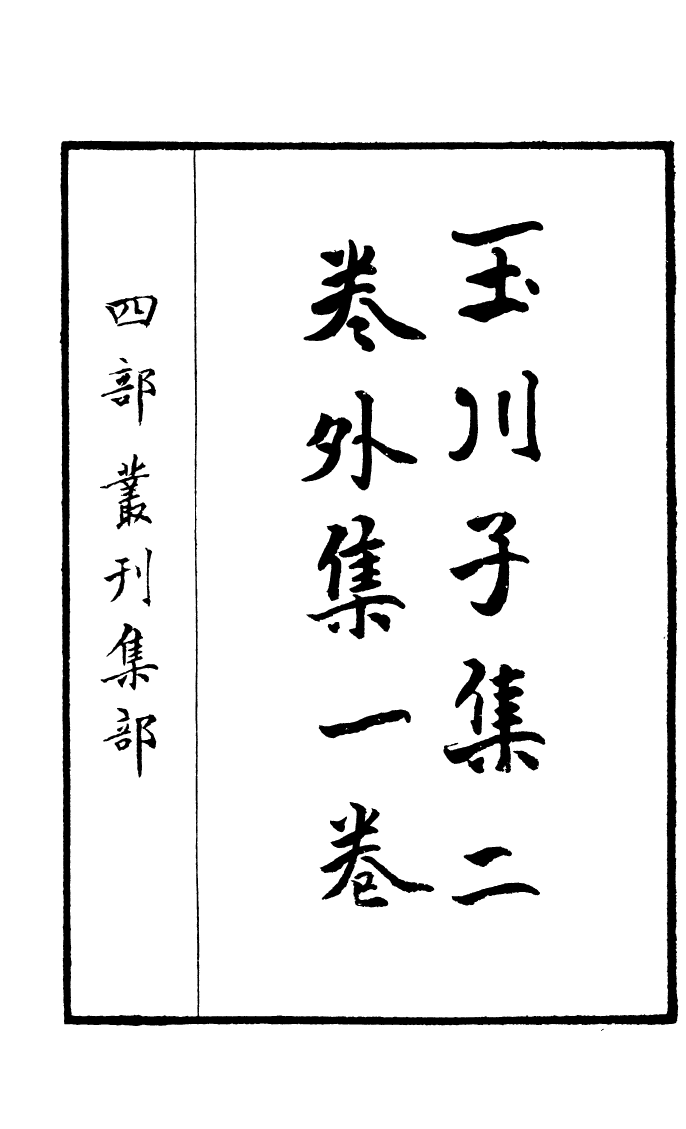 玉川子集二
卷外集一卷
四部叢刊集部